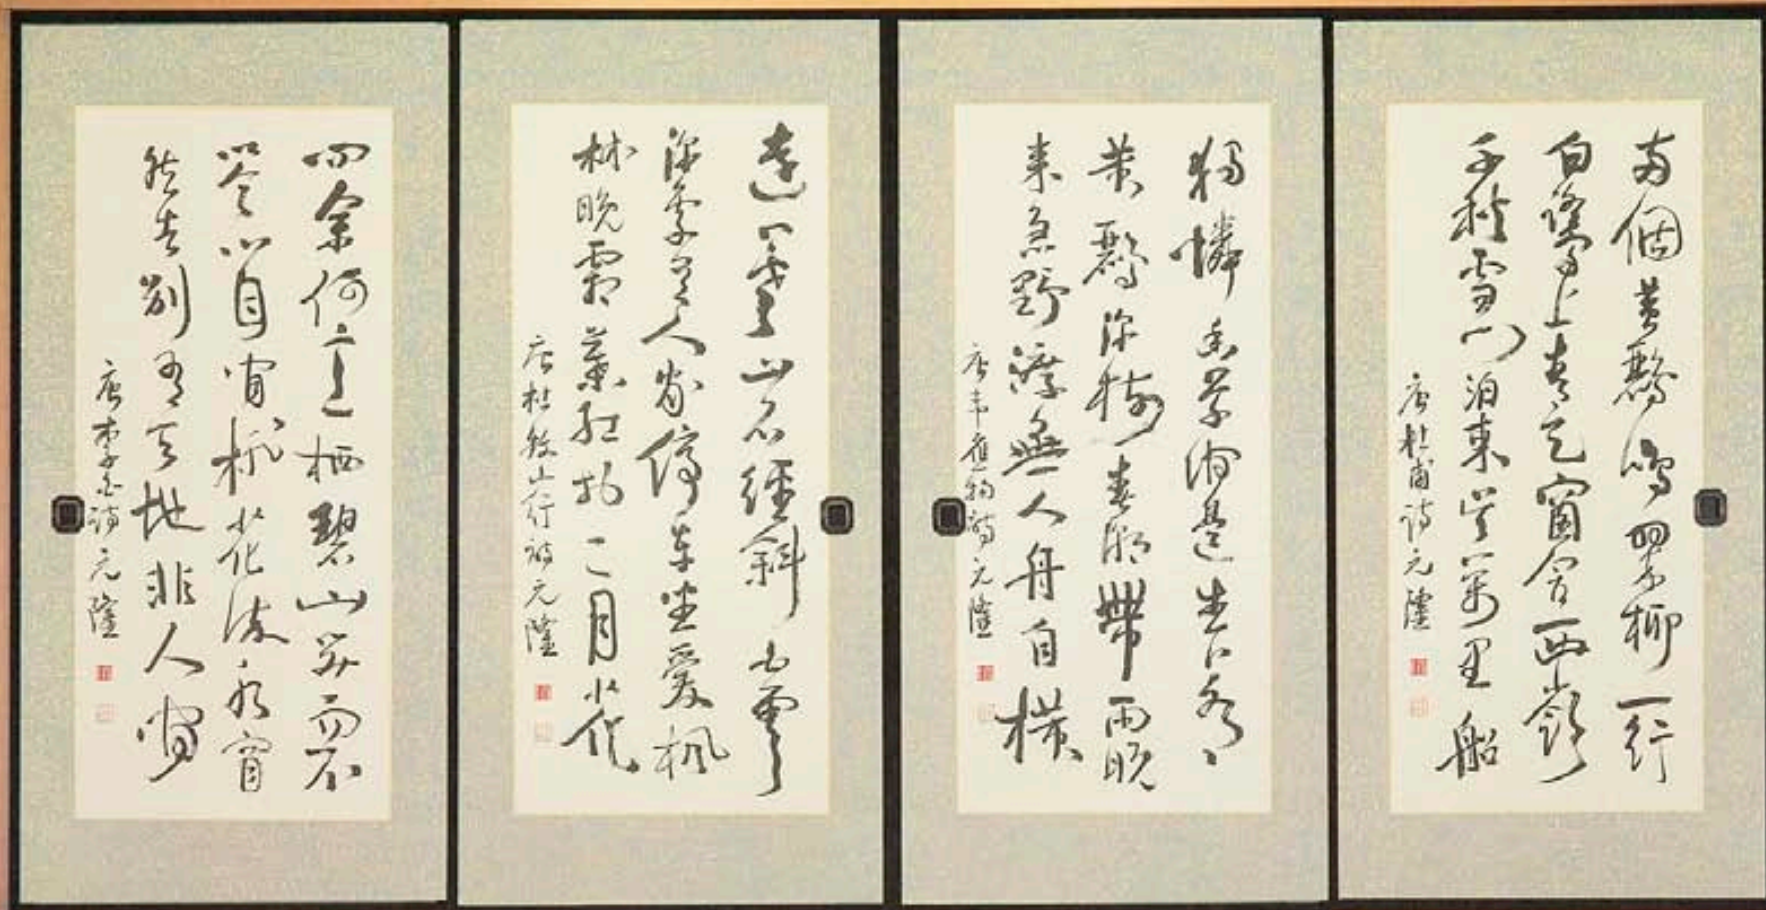 両個黄鸝鳴翠柳一行
白鷺上青天窗含西嶺
千秋雪門泊東呉万里船
唐杜甫詩元隆
獨憐幽草澗邊生上有
黄鸝深樹春潮帶雨晩
来急野渡無人舟自横
唐韋應物詩元隆
遠上寒山石經斜白雲
深處有人家停車坐愛楓
林晩霜葉紅於二月花
唐杜牧山行詩元隆
問余何意栖碧山笑而不
答心自閑桃花流水窅
然去別有天地非人間
唐李白詩元隆